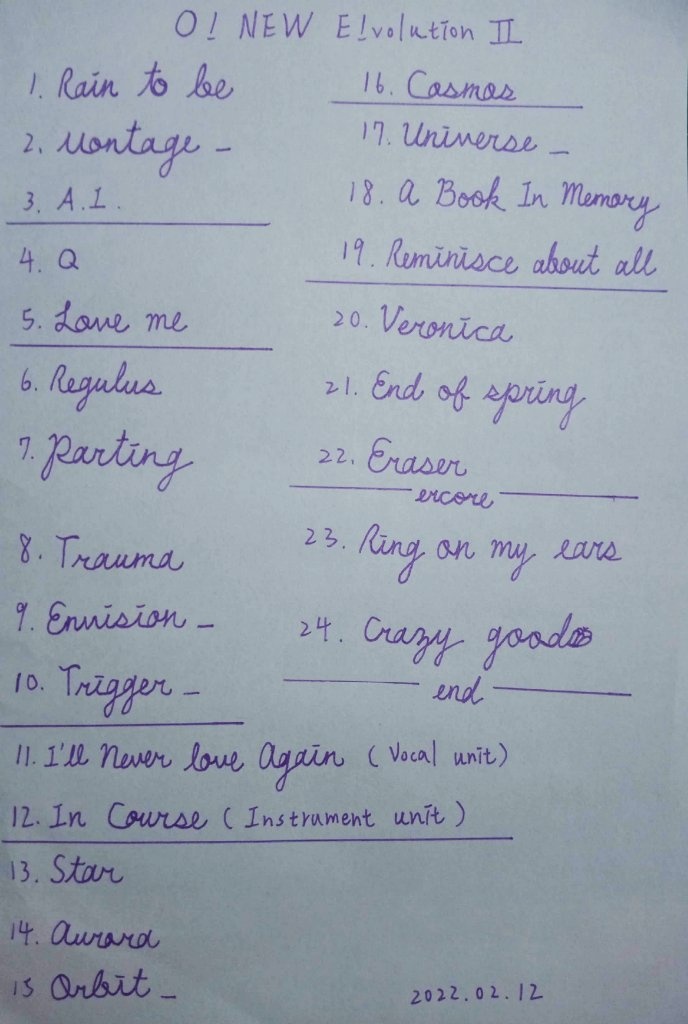 O! NEW E!volution II
1. Rain to be
2. Montage _
3. A.I.
4. Q
5. Love me
6. Regulus
7. Parting
8. Trauma
9. Envision _
10. Trigger _
11. I'll Never love Again (Vocal unit)
12. In Course (Instrument unit)
13. Star
14. Aurora
15 Orbit _
16. Cosmos
17. Universe _
18. A Book In Memory
19. Reminisce about all
20. Veronica
21. End of spring
22. Eraser
ercore
23. Ring on my ears
24. Crazy good
end
2022.02.12